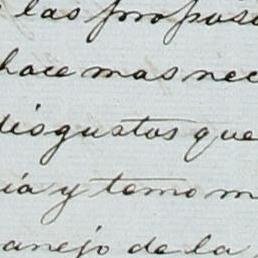 las propos
hace mas nec
disgustos que
ia y temo m
anejo de la